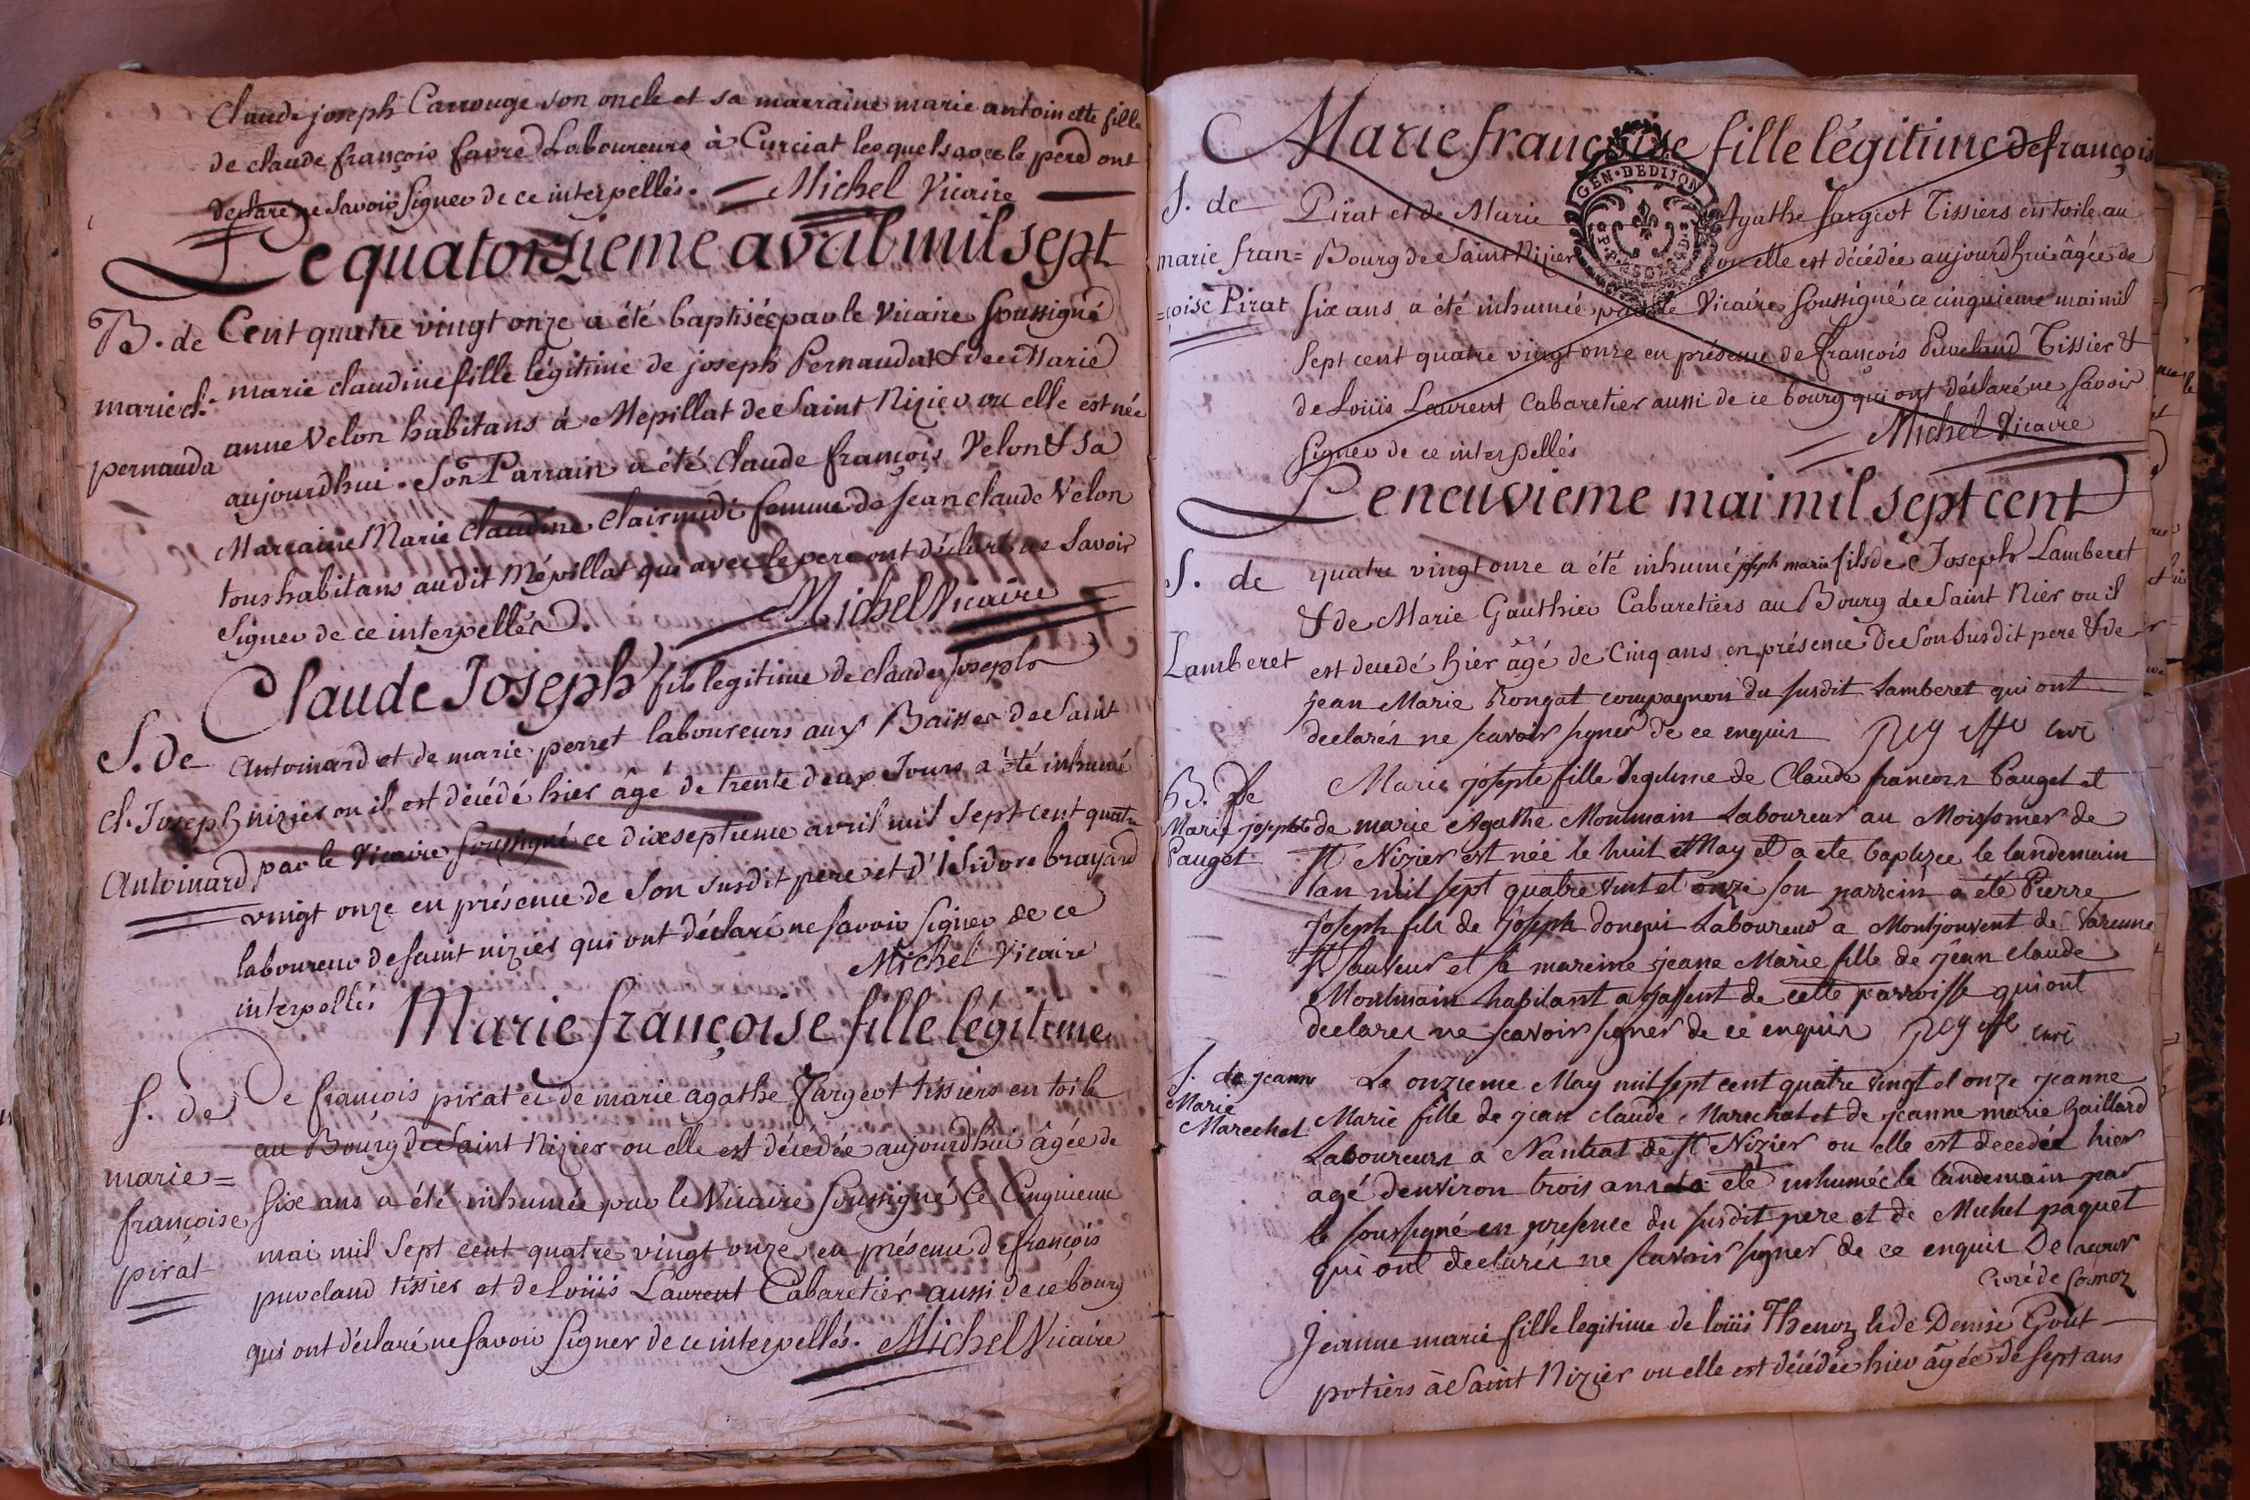 Claude joseph Carrouge son oncle et sa marraine marie antoinette fille
de claude françois favre Laboureurs à Curciat lesquels avec le pere ont
declaré ne savoir signer de ce interpellés. Michel Vicaire
Le quatorzieme avril mil sept
B. de
marie cl.
pernauda
Cent quatre vingt onze a été baptisée par le Vicaire soussigné
marie claudine fille légitime de joseph Pernaudat & de Marie
anne Velon habitans à Mepillat de Saint Nizier ou elle est née
aujourdhui. Son Parrain a été Claude françois Velon & sa
Marraine Marie Claudine Clairmidi femme de Jean claude Velon
tous habitans audit Mépillat qui avec le pere ont déclaré ne Savoir
Signer de ce interpellés. Michel Vicaire
Claude Joseph fils legitime de claude joseph
S. De
cl. Joseph
Antoinard
Antoinard et de marie perret laboureurs aux Baisses de Saint
nizier ou il est décédé hier âgé de trente deux Jours a été inhumé
par le Vicaire soussigné ce dixseptieme avril mil sept cent quatre
vingt onze en présence de son susdit pere et d'Isidore brayard
laboureur de saint nizier qui ont déclaré ne savoir signer de ce
interpellés Michel Vicaire
Marie françoise fille légitime
S. de
marie=
françoise
pirat
De françois pirat et de marie agathe fargeot tissiers en toile
au Bourg de Saint Nizier ou elle est décédée aujourdhui âgée de
six ans a été inhumée par le Vicaire soussigné le Cinquieme
mai mil sept cent quatre vingt onze en présence de françois
puveland tissier et de Loüis Laurent Cabaretier aussi de ce bourg
qui ont déclaré ne savoir signer de ce interpellés. Michel Vicaire
Marie françoise fille légitime de françois
GEN. DE DIJON
S. de
marie fran=
=çoise Pirat
Pirat et de Marie Agathe fargeot Tissiers en toile au
Bourg de Saint Nizier ou elle est décédée aujourdhui âgée de
six ans a été inhumée par le Vicaire soussigné ce cinquieme mai mil
sept cent quatre vingt onze en présence de françois Puveland Tissier &
de Loüis Laurent Cabaretier aussi de ce bourg qui ont déclaré ne savoir
signer de ce interpellés Michel Vicaire
Le neuvieme mai mil sept cent
S. de
Lamberet
quatre vingt onze a été inhumé joseph marie fils de Joseph Lamberet
& de Marie Gauthier Cabaretiers au Bourg de Saint Nier ou il
est decedé hier âgé de Cinq ans en présence de son susdit pere & de
jean Marie Rongat compagnon du susdit Lamberet qui ont
declarés ne scavoir signer de ce enquis Rey curé
B. De
Marie josephte
Pauget
Marie josephte fille legitime de Claude francois Pauget et
de marie Agathe Monlmain Laboureur au Moissonier de
St Nizier est née le huit May et a ete baptisee le landemain
lan mil sept quatre vint et onze son parrein a été Pierre
Joseph fils de joseph donqui Laboureur a Montjouvent de Varenne
St Sauveur et sa mareine jeane Marie fille de jean claude
Monlmain habitant a jassent de cette parroisse qui ont
declares ne scavoir signer de ce enquis Rey curé
S. de jeanne
Marie
Marechal
Le onzieme May mil sept cent quatre vingt et onze jeanne
Marie fille de jean claude Marechal et de jeanne marie Gaillard
Laboureurs a Nantat de St Nizier ou elle est decedée hier
agé denviron trois ans a eté inhumée le landemain par
le soussigné en presence du susdit pere et de Michel paquet
qui ont declarés ne scavoir signer de ce enquis Delacour
Curé de Cormoz
Jeanne marie fille legitime de loüis Thenoz & de Denise Gout
potiers à Saint Nizier ou elle est décédée hier âgée de sept ans